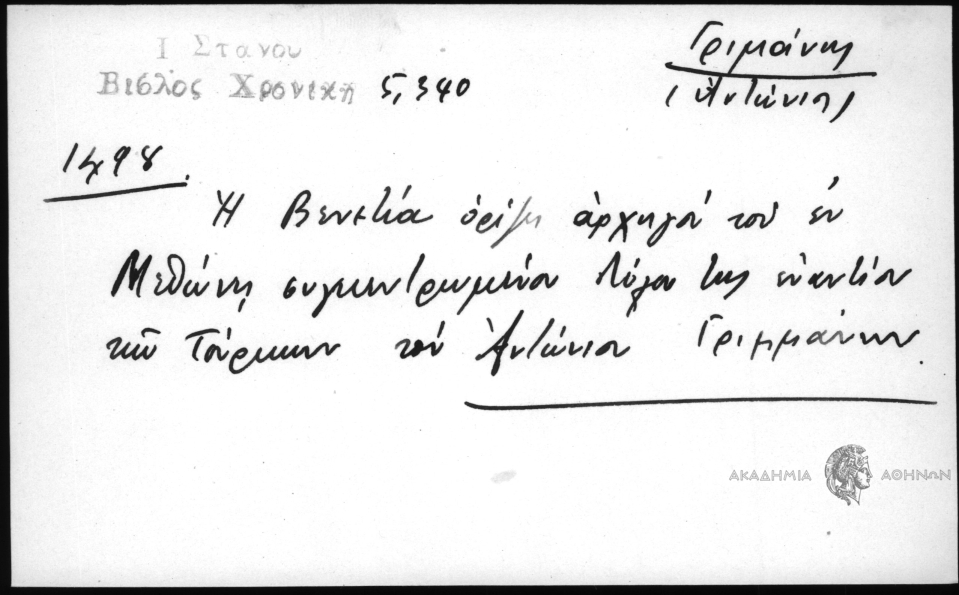 Ι Στανου
Βιβλος Χρονικη 5, 340
Γριμάνης
(Ἀντώνιος)
1498.
Ἡ Βενετία ὁρίζει ἀρχηγόν τοῦ ἐν
Μεθώνῃ συγκεντρωμένου στόλου της ἐναντίον
τῶν Τούρκων τόν Ἀντώνιον Γριμμάνην.
ΑΚΑΔΗΜΙΑ ΑΘΗΝΩΝ